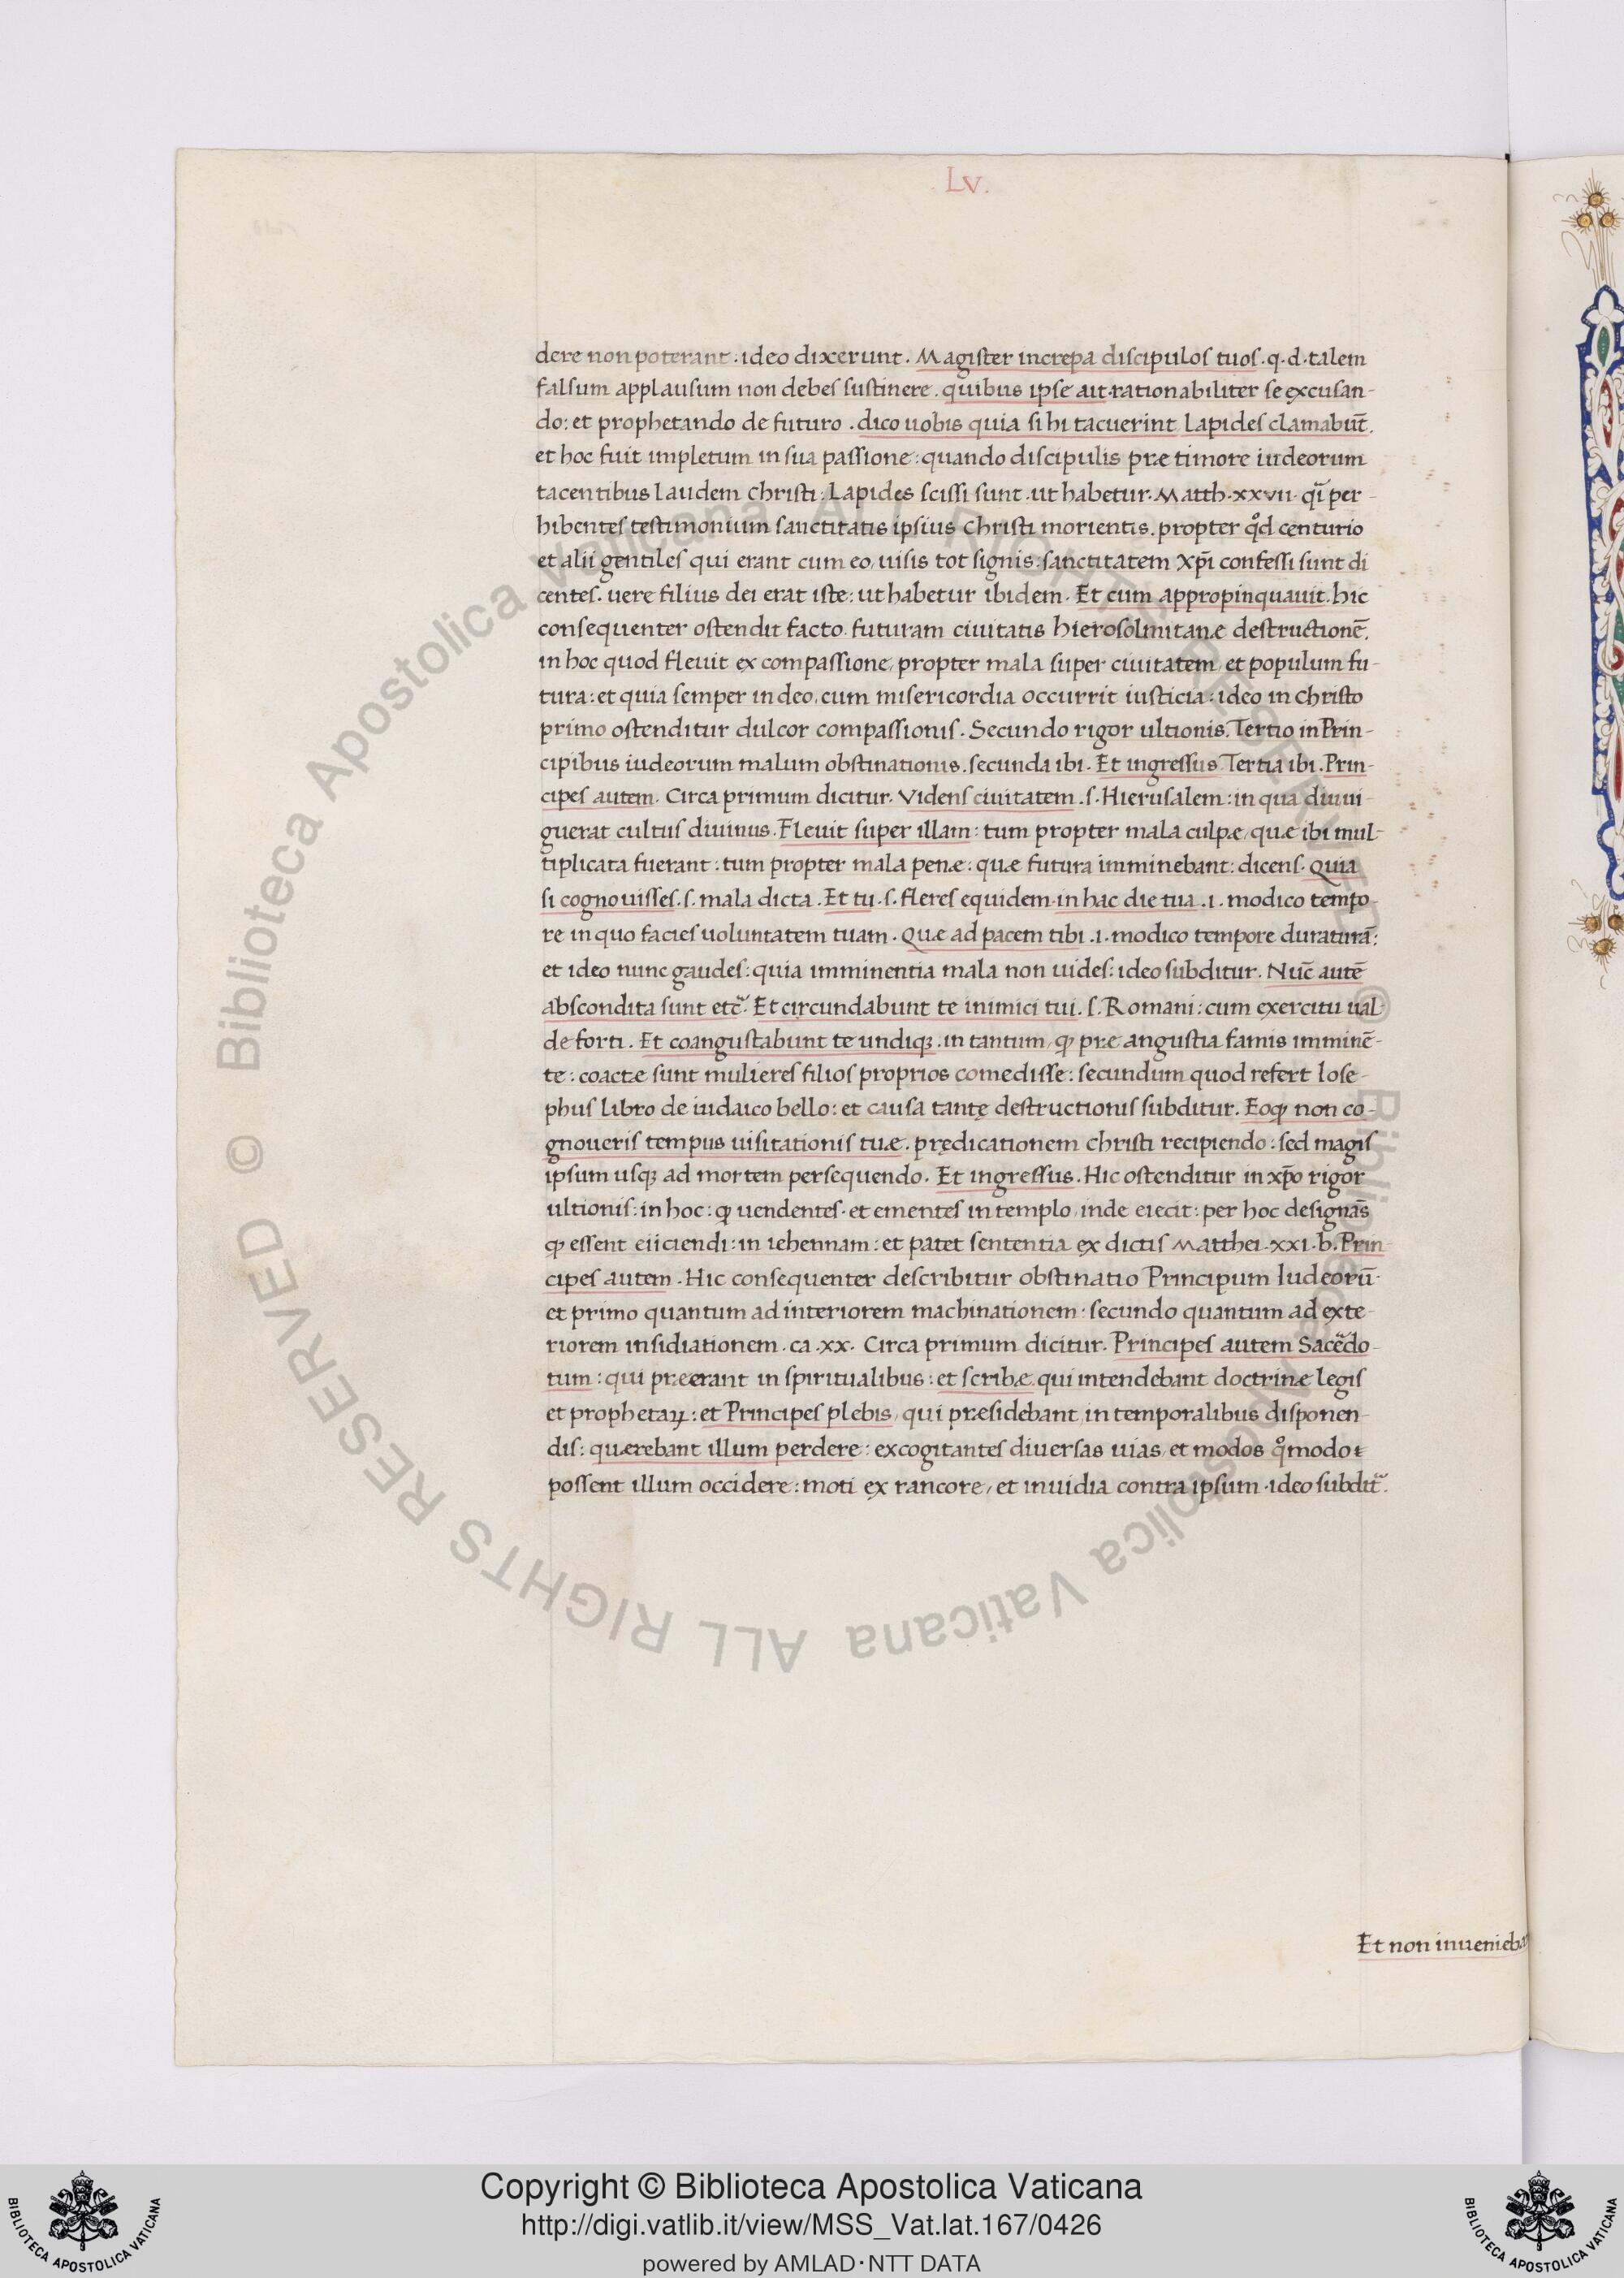 .LV.
dere non poterant: ideo dixerunt. Magister increpa discipulos tuos. q. d. talem
falsum applausum non debes sustinere. quibus ipse ait. rationabiliter se excusan-
do: et prophetando de futuro. dico uobis quia si hi tacuerint, Lapides clamabūt.
et hoc fuit impletum in sua passione: quando discipulis præ timore iudeorum
tacentibus laudem christi: Lapides scissi sunt. ut habetur. Matth. xxvii. q̄i per-
hibentes testimonium sanctitatis ipsius christi morientis. propter qͦd centurio
et alii gentiles qui erant cum eo, uisis tot signis: sanctitatem xp̄i confessi sunt di
centes. uere filius dei erat iste: ut habetur ibidem. Et cum appropinquauit. hic
consequenter ostendit facto. futuram ciuitatis hierosolmitanæ destructionē.
in hoc quod fleuit ex compassione, propter mala super ciuitatem, et populum fu-
tura: et quia semper in deo, cum misericordia occurrit iusticia: ideo in christo
primo ostenditur dulcor compassionis. Secundo rigor ultionis. Tertio in Prin-
cipibus iudeorum malum obstinationis. secunda ibi. Et ingressus Tertia ibi. Prin-
cipes autem. Circa primum dicitur. Videns ciuitatem. s. Hierusalem: in qua diuui-
guerat cultus diuinus. Fleuit super illam: tum propter mala culpæ, quæ ibi mul-
tiplicata fuerant: tum propter mala penæ: quæ futura imminebant: dicens. Quia
si cognouisses. s. mala dicta. Et tu. s. fleres equidem. in hac die tua. i. modico tempo-
re in quo facies uoluntatem tuam. Quæ ad pacem tibi. i. modico tempore duraturā:
et ideo nunc gaudes: quia imminentia mala non uides: ideo subditur. Nūc autē
abscondita sunt etc̄. Et circundabunt te inimici tui. s. Romani: cum exercitu ual-
de forti. Et coangustabunt te undiqꝫ. in tantum, ꝙ præ angustia famis imminē-
te: coactæ sunt mulieres filios proprios comedisse: secundum quod refert Iose-
phus libro de iudaico bello: et causa tantę destructionis subditur. Eoꝙ non co-
gnoueris tempus uisitationis tuæ. prędicationem christi recipiendo: sed magis
ipsum usqꝫ ad mortem persequendo. Et ingressus. Hic ostenditur in xp̄o rigor
ultionis: in hoc: ꝙ uendentes. et ementes in templo, inde eiecit: per hoc designās
ꝙ essent eiiciendi: in iehennam: et patet sententia ex dictis Matthei. xxi. b. Prin-
cipes autem. Hic consequenter describitur obstinatio Principum Iudeorū.
et primo quantum ad interiorem machinationem: secundo quantum ad exte-
riorem insidiationem. ca. xx. Circa primum dicitur. Principes autem Sacēdo-
tum: qui præerant in spiritualibus: et scribæ. qui intendebant doctrinæ legis
et prophetaꝝ: et Principes plebis, qui præsidebant, in temporalibus disponen-
dis: quærebant illum perdere: excogitantes diuersas uias, et modos qͦmodo
possent illum occidere: moti ex rancore, et inuidia contra ipsum. ideo subdit᷑.
Et non inuenieba
Biblioteca Apostolica Vaticana ALL RIGHTS RESERVED © Biblioteca Apostolica Vaticana ALL RIGHTS RESERVED ©
Copyright © Biblioteca Apostolica Vaticana
http://digi.vatlib.it/view/MSS_Vat.lat.167/0426
powered by AMLAD·NTT DATA
BIBLIOTECA APOSTOLICA VATICANA
BIBLIOTECA APOSTOLICA VATICANA